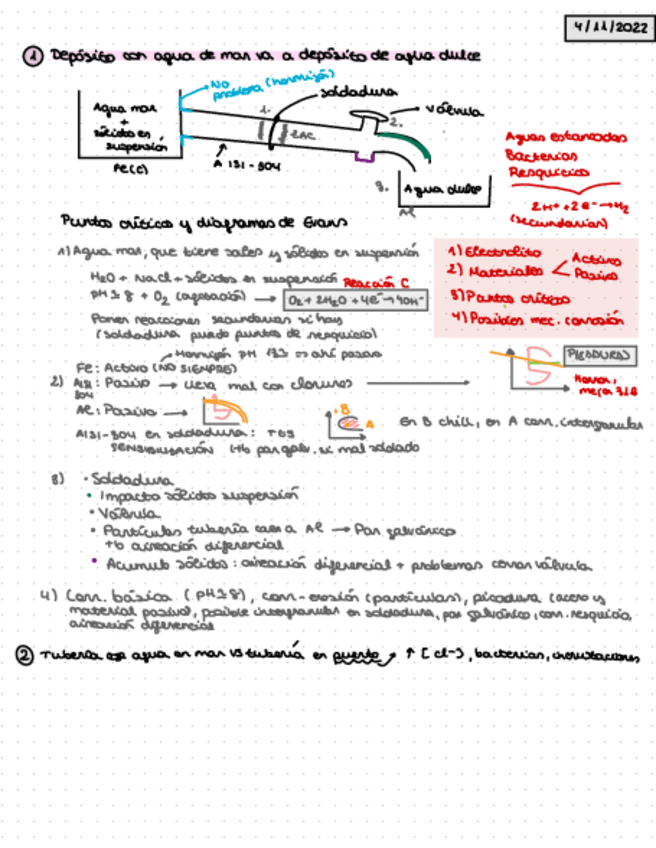 4/11/2022
1 Depósito con agua de mar va a depósito de agua dulce
No problema (hormigón)
soldadura
válvula
Agua mar
+
sólidos en
suspensión
Fe(C)
1.
2.
ZAC
AISI-304
3.
Agua dulce
Al
Aguas estancadas
Bacterias
Resquicios
2H⁺ + 2e⁻ → H₂
(secundarias)
Puntos críticos y diagramas de Evans
1) Electrolito
2) Materiales < Activo
Pasivo
3) Puntos críticos
4) Posibles mec. corrosión
1) Agua mar, que tiene sales y sólidos en suspensión
H₂O + NaCl + sólidos en suspensión Reacción C
pH ≥ 8 + O₂ (aireación) → O₂ + 2H₂O + 4e⁻ → 4OH⁻
Poner reacciones secundarias si hay
(soldadura puede puntos de resquicio)
Hormigón pH 13 => ahí pasivo
Fe: Activo (NO SIEMPRE)
2) AISI 304: Pasivo → lleva mal con cloruros
PICADURAS
Al: Pasivo →
B
A
En B chill, en A corr. intergranular
AISI-304 en soldadura:
SENSIBILIZACIÓN tb par galv. si mal soldado
3) • Soldadura
• Impacto sólidos suspensión
• Válvula
• Partículas tubería caen a Al → Par galvánico
tb aireación diferencial
• Acumulo sólidos: aireación diferencial + problemas cerrar válvula
4) Corr. básica (pH ≥ 8), corr-erosión (partículas), picadura (acero y
material pasivo), posible intergranular en soldadura, par galvánico, corr. resquicio,
aireación diferencial
2 Tubería agua en mar vs tubería en puerto → ↑ [Cl-], bacterias, incrustaciones